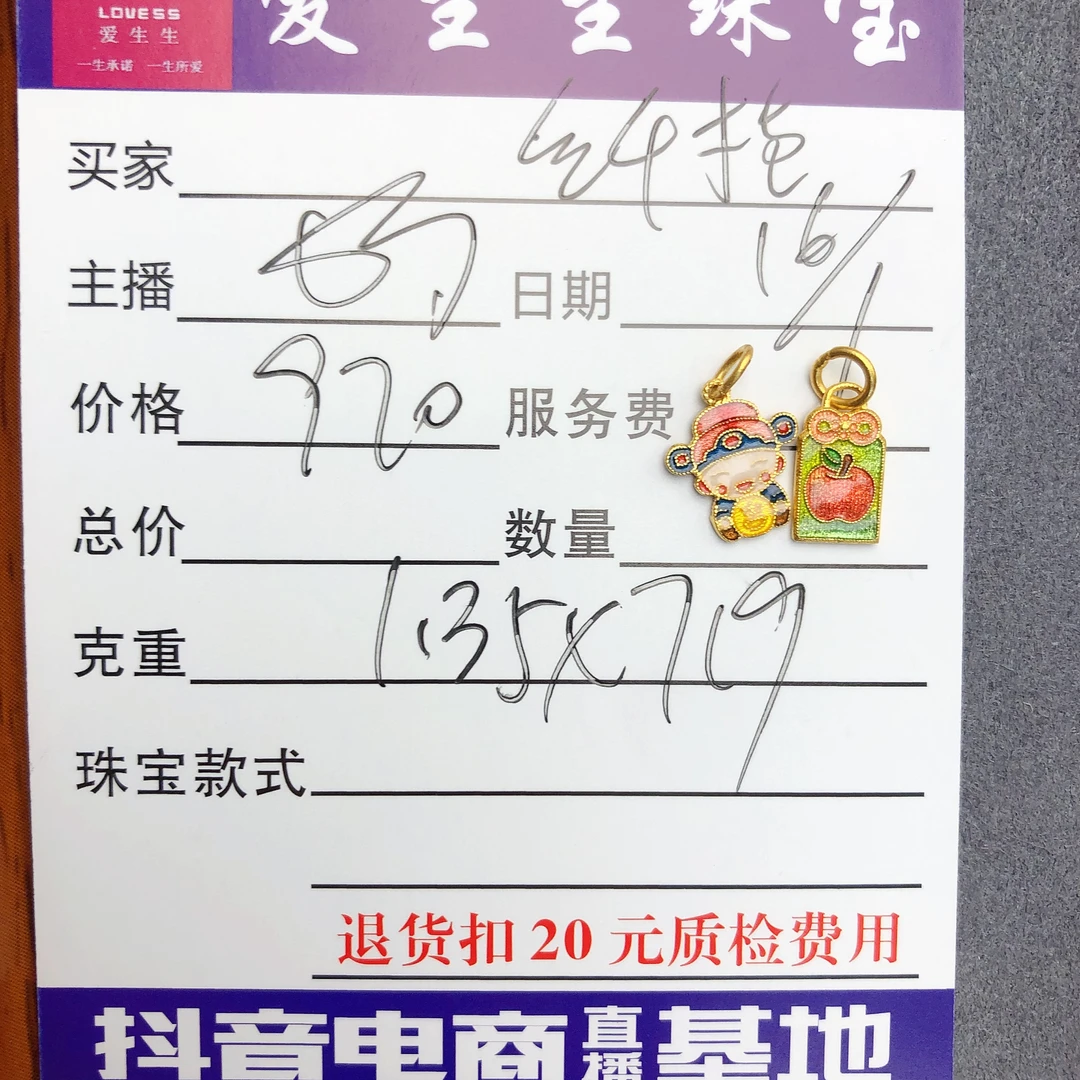 LOVESS
爱生生
一生承诺 一生所爱
爱生生珠宝
买家 纤指
主播 日期 16/1
价格 920 服务费
总价 数量
克重 1.35x719
珠宝款式
退货扣20元质检费用
抖音电商直播基地